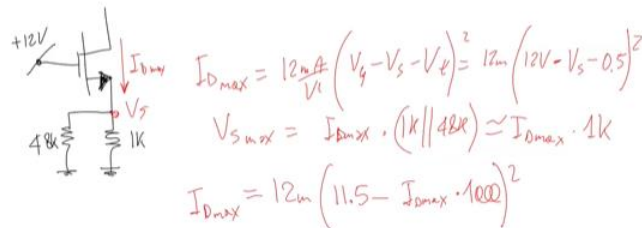 +12V
I_Dmax
V_S
48k
1K
I_Dmax = 12mA/V² (V_g - V_s - V_t)² = 12m (12V - V_s - 0.5)²
V_Smax = I_Dmax · (1k||48k) ≃ I_Dmax · 1K
I_Dmax = 12m (11.5 - I_Dmax · 1000)²